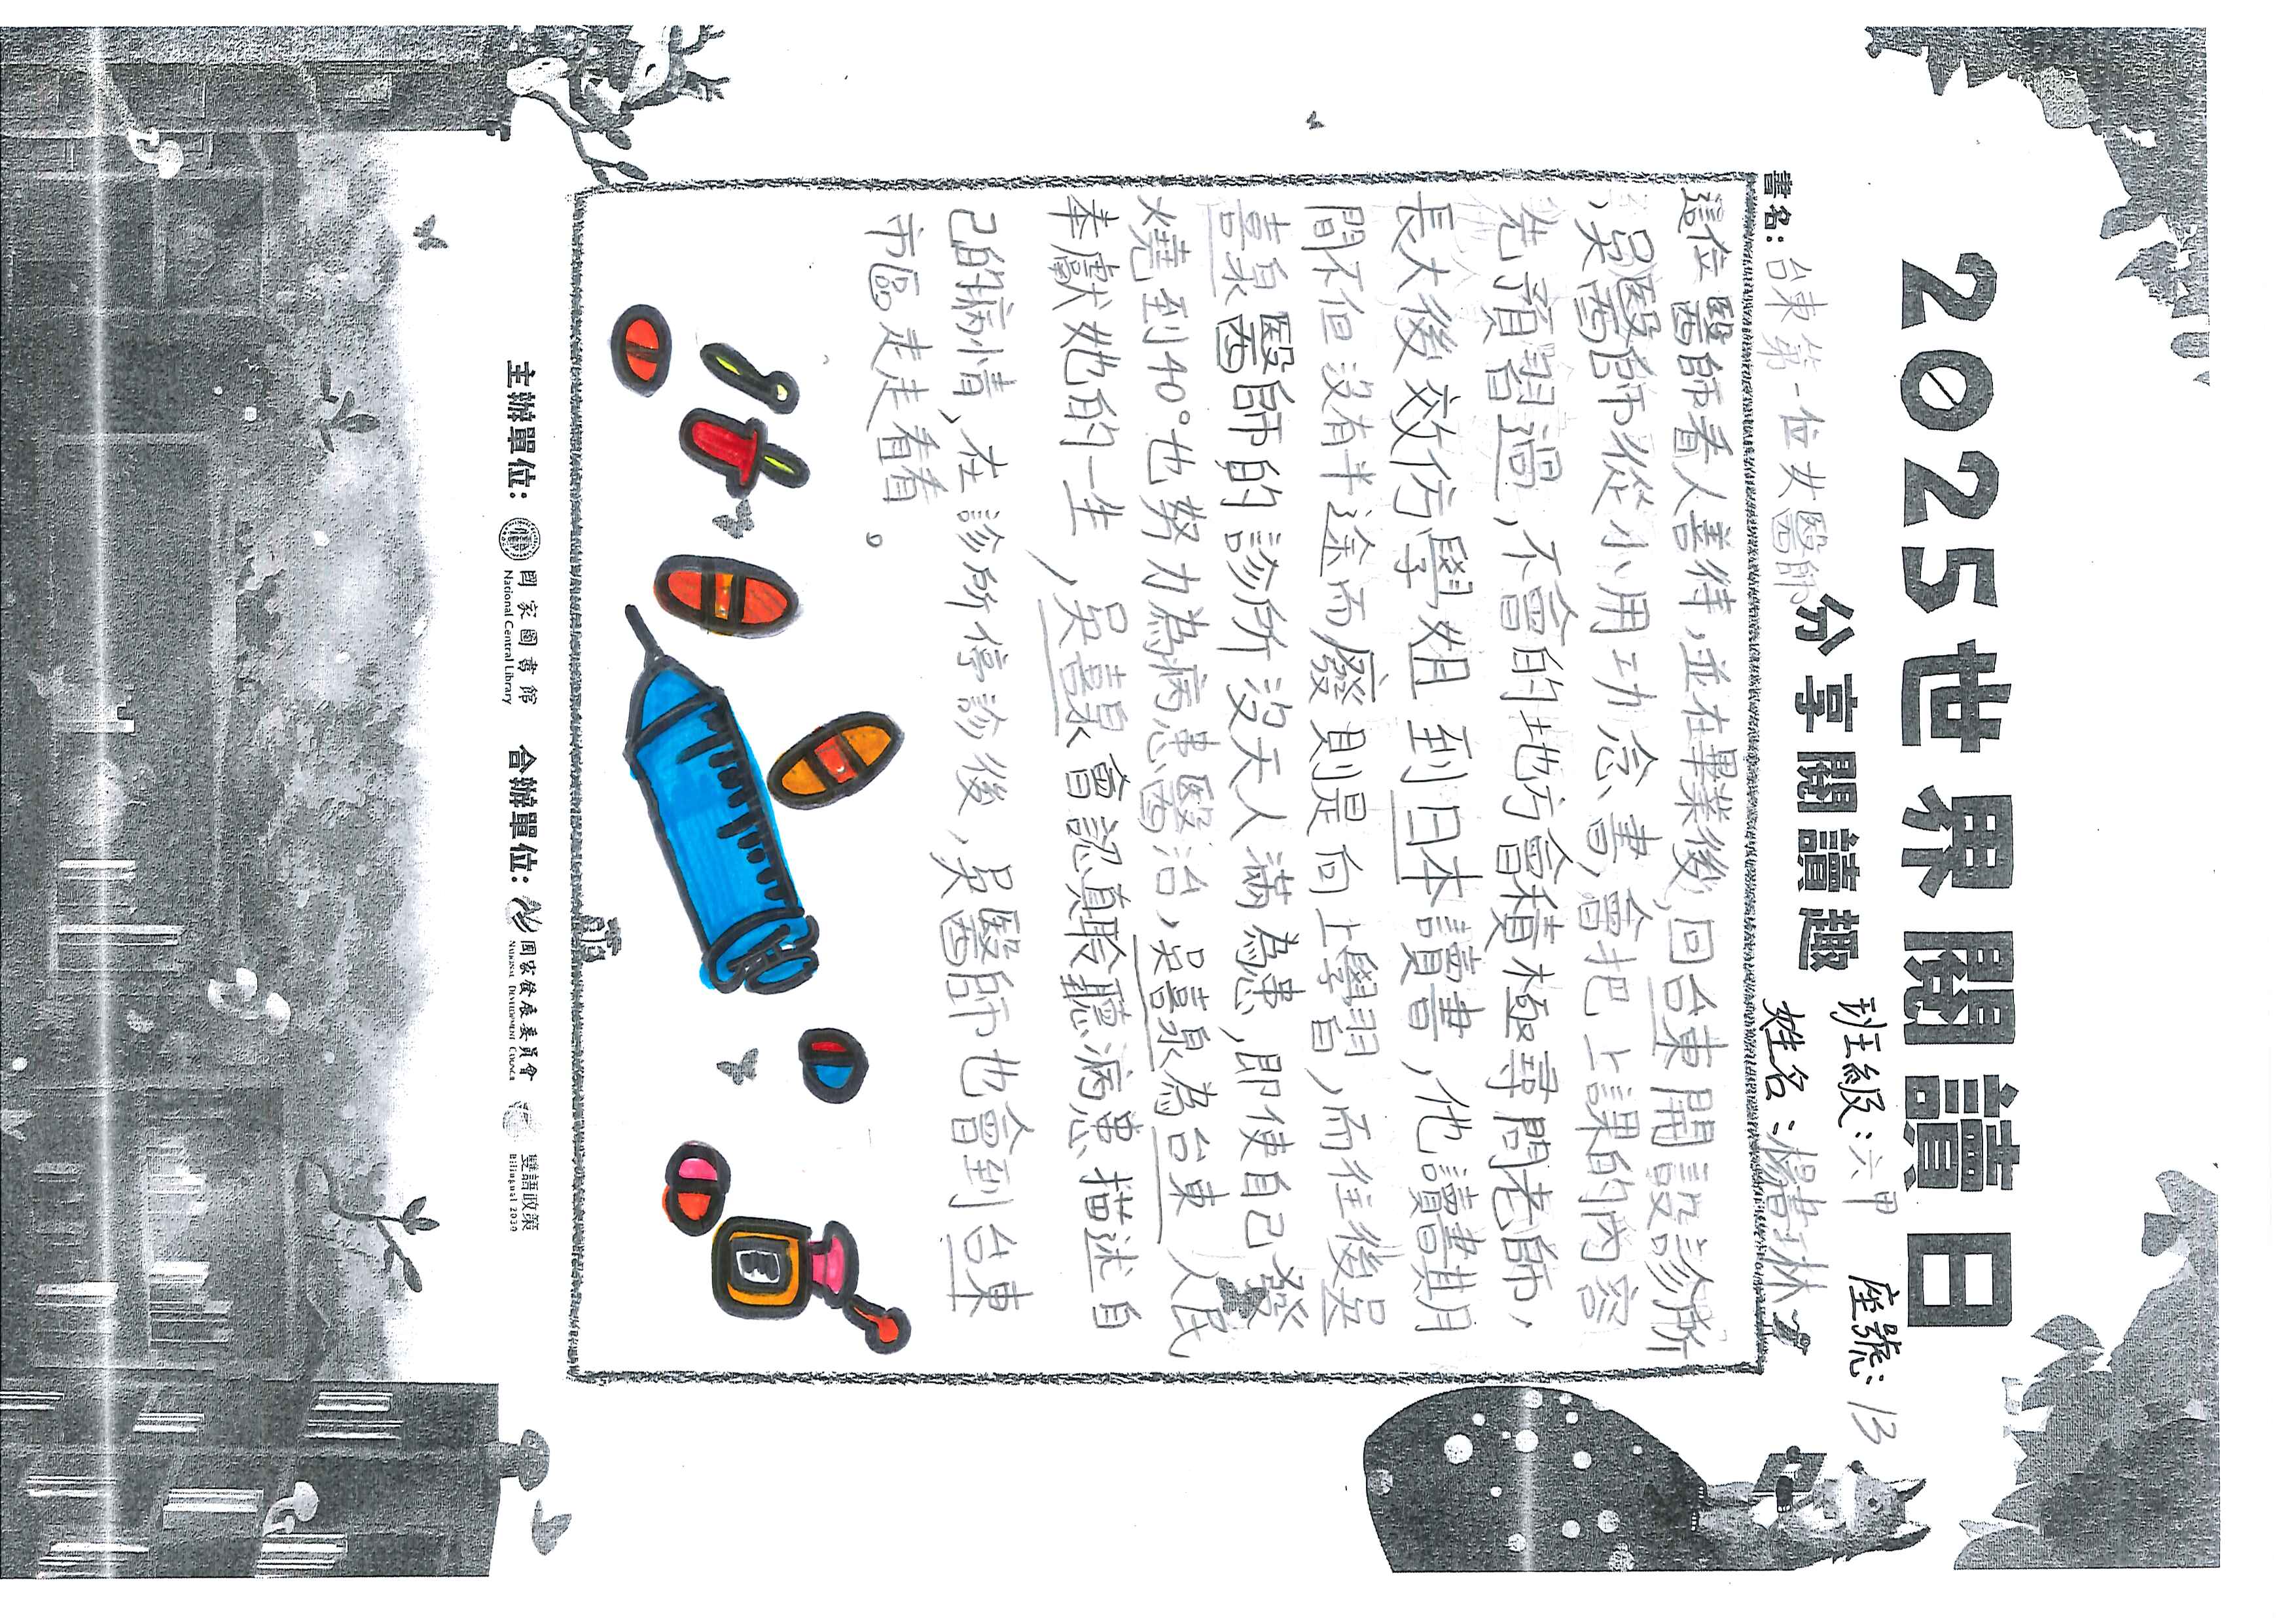 2025世界閱讀日
分享閱讀趣
班級：六甲 座號：13
姓名：楊書琳
書名：台東第一位女醫師
這位醫師看人善待，並在畢業後，回台東開設診所
，吳醫師從小用功念書，會把上課的內容
先預習過，不會的地方會積極尋問老師，
長大後效仿學姐到日本讀書，他讀書期
間不但沒有半途而廢則是向上學習，而往後吳
喜泉醫師的診所沒天人滿為患，即使自己發
燒到40°也努力為病患醫治，吳喜泉為台東人民
奉獻她的一生，吳喜泉會認真聆聽病患描述自
己的病情，在診所停診後，吳醫師也會到台東
市區走走看看。
主辦單位： 國家圖書館 National Central Library 合辦單位： 國家發展委員會 National Development Council 雙語政策 Bilingual 2030